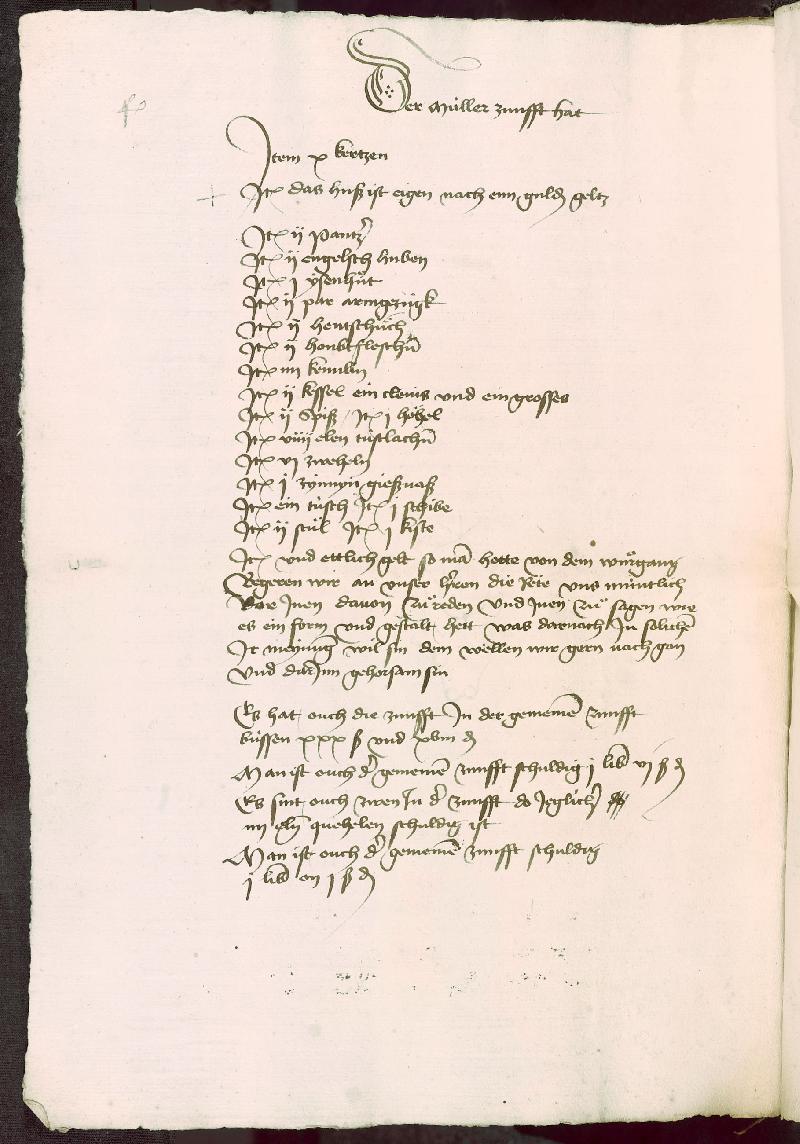 Der Müller zunfft hat
Jtem x kertzen
Jt das huß ist eigen nach ein guld geltz
Jt ij pantz
Jt ij engelsch huben
Jt j ysenhůt
Jt ij par armgezügk
Jt ij hentschůch
Jt ij houbtfleschn̄
Jt iiij kennlin
Jt ij kessel ein cleins und ein grosses
Jt ij Spiß Jt j höhel
Jt viiij elen tüschlachn̄
Jt vj zweheln
Jt j zynnyn gießuaß
Jt ein tüsch Jt j schibe
Jt ij stül Jt j kiste
Jt und ettlich gelt so mā hette von dem wurgang
Begeren wir an unser h'ren die Räte uns müntlich
Vor Jnen davon zů reden Und Jnen zů sagen wie
es ein form und gestalt hett was darnach Jn solichē
Jr meynung wil sin dem wellen wir gern nach gan
Und darJnn gehorsam sin
Es hat ouch die zunfft Jn der gemeinē zunfft
büssen xxx ß und xviij d
Man ist ouch d' gemeinē zunfft schuldig j lib vj ß d
Es sint ouch zwen Jn d' zunfft do Jeglich'
iiij eln̄ quehelen schuldig ist
Man ist ouch d' gemeinē zunfft schuldig
j lib on j ß d